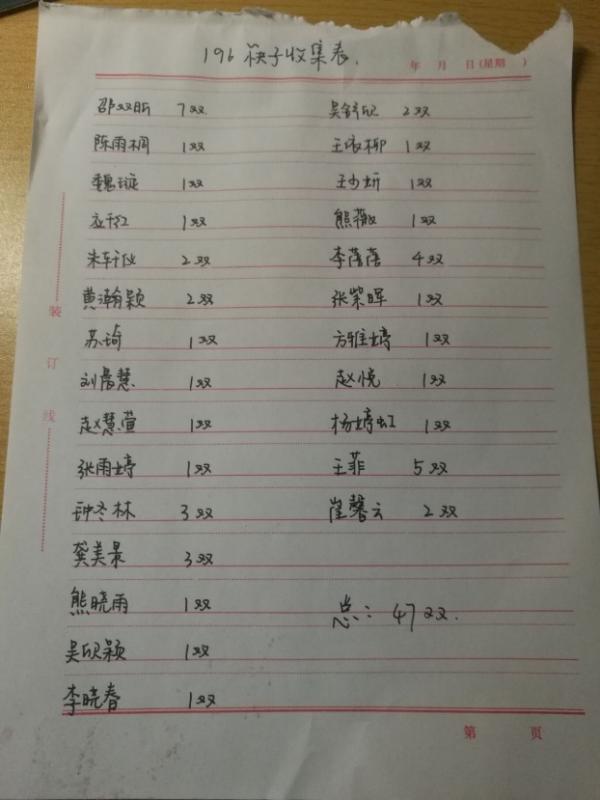 196 筷子收集表.
年 月 日(星期 )
邵双昕 7双 吴舒欣 2双
陈雨桐 1双 王依柳 1双
魏璇 1双 王少妍 1双
应千红 1双 熊薇 1双
朱轩仪 2双 李蓓蓓 4双
黄瀚颖 2双 张紫晖 1双
苏琦 1双 方雅婷 1双
刘晨慧 1双 赵悦 1双
赵慧萱 1双 杨婷虹 1双
张雨婷 1双 王菲 5双
钟冬林 3双 崔馨云 2双
龚美景 3双
熊晓雨 1双 总: 47双.
吴欣颖 1双
李晓春 1双
装订线
第 页